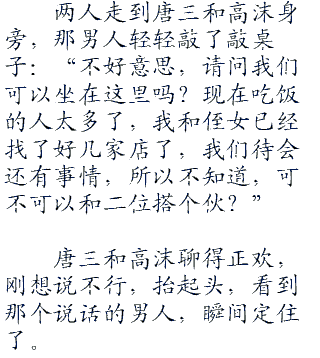 两人走到唐三和高沫身
旁，那男人轻轻敲了敲桌
子：“不好意思，请问我们
可以坐在这里吗？现在吃饭
的人太多了，我和侄女已经
找了好几家店了，我们待会
还有事情，所以不知道，可
不可以和二位搭个伙？”
唐三和高沫聊得正欢，
刚想说不行，抬起头，看到
那个说话的男人，瞬间定住
了。